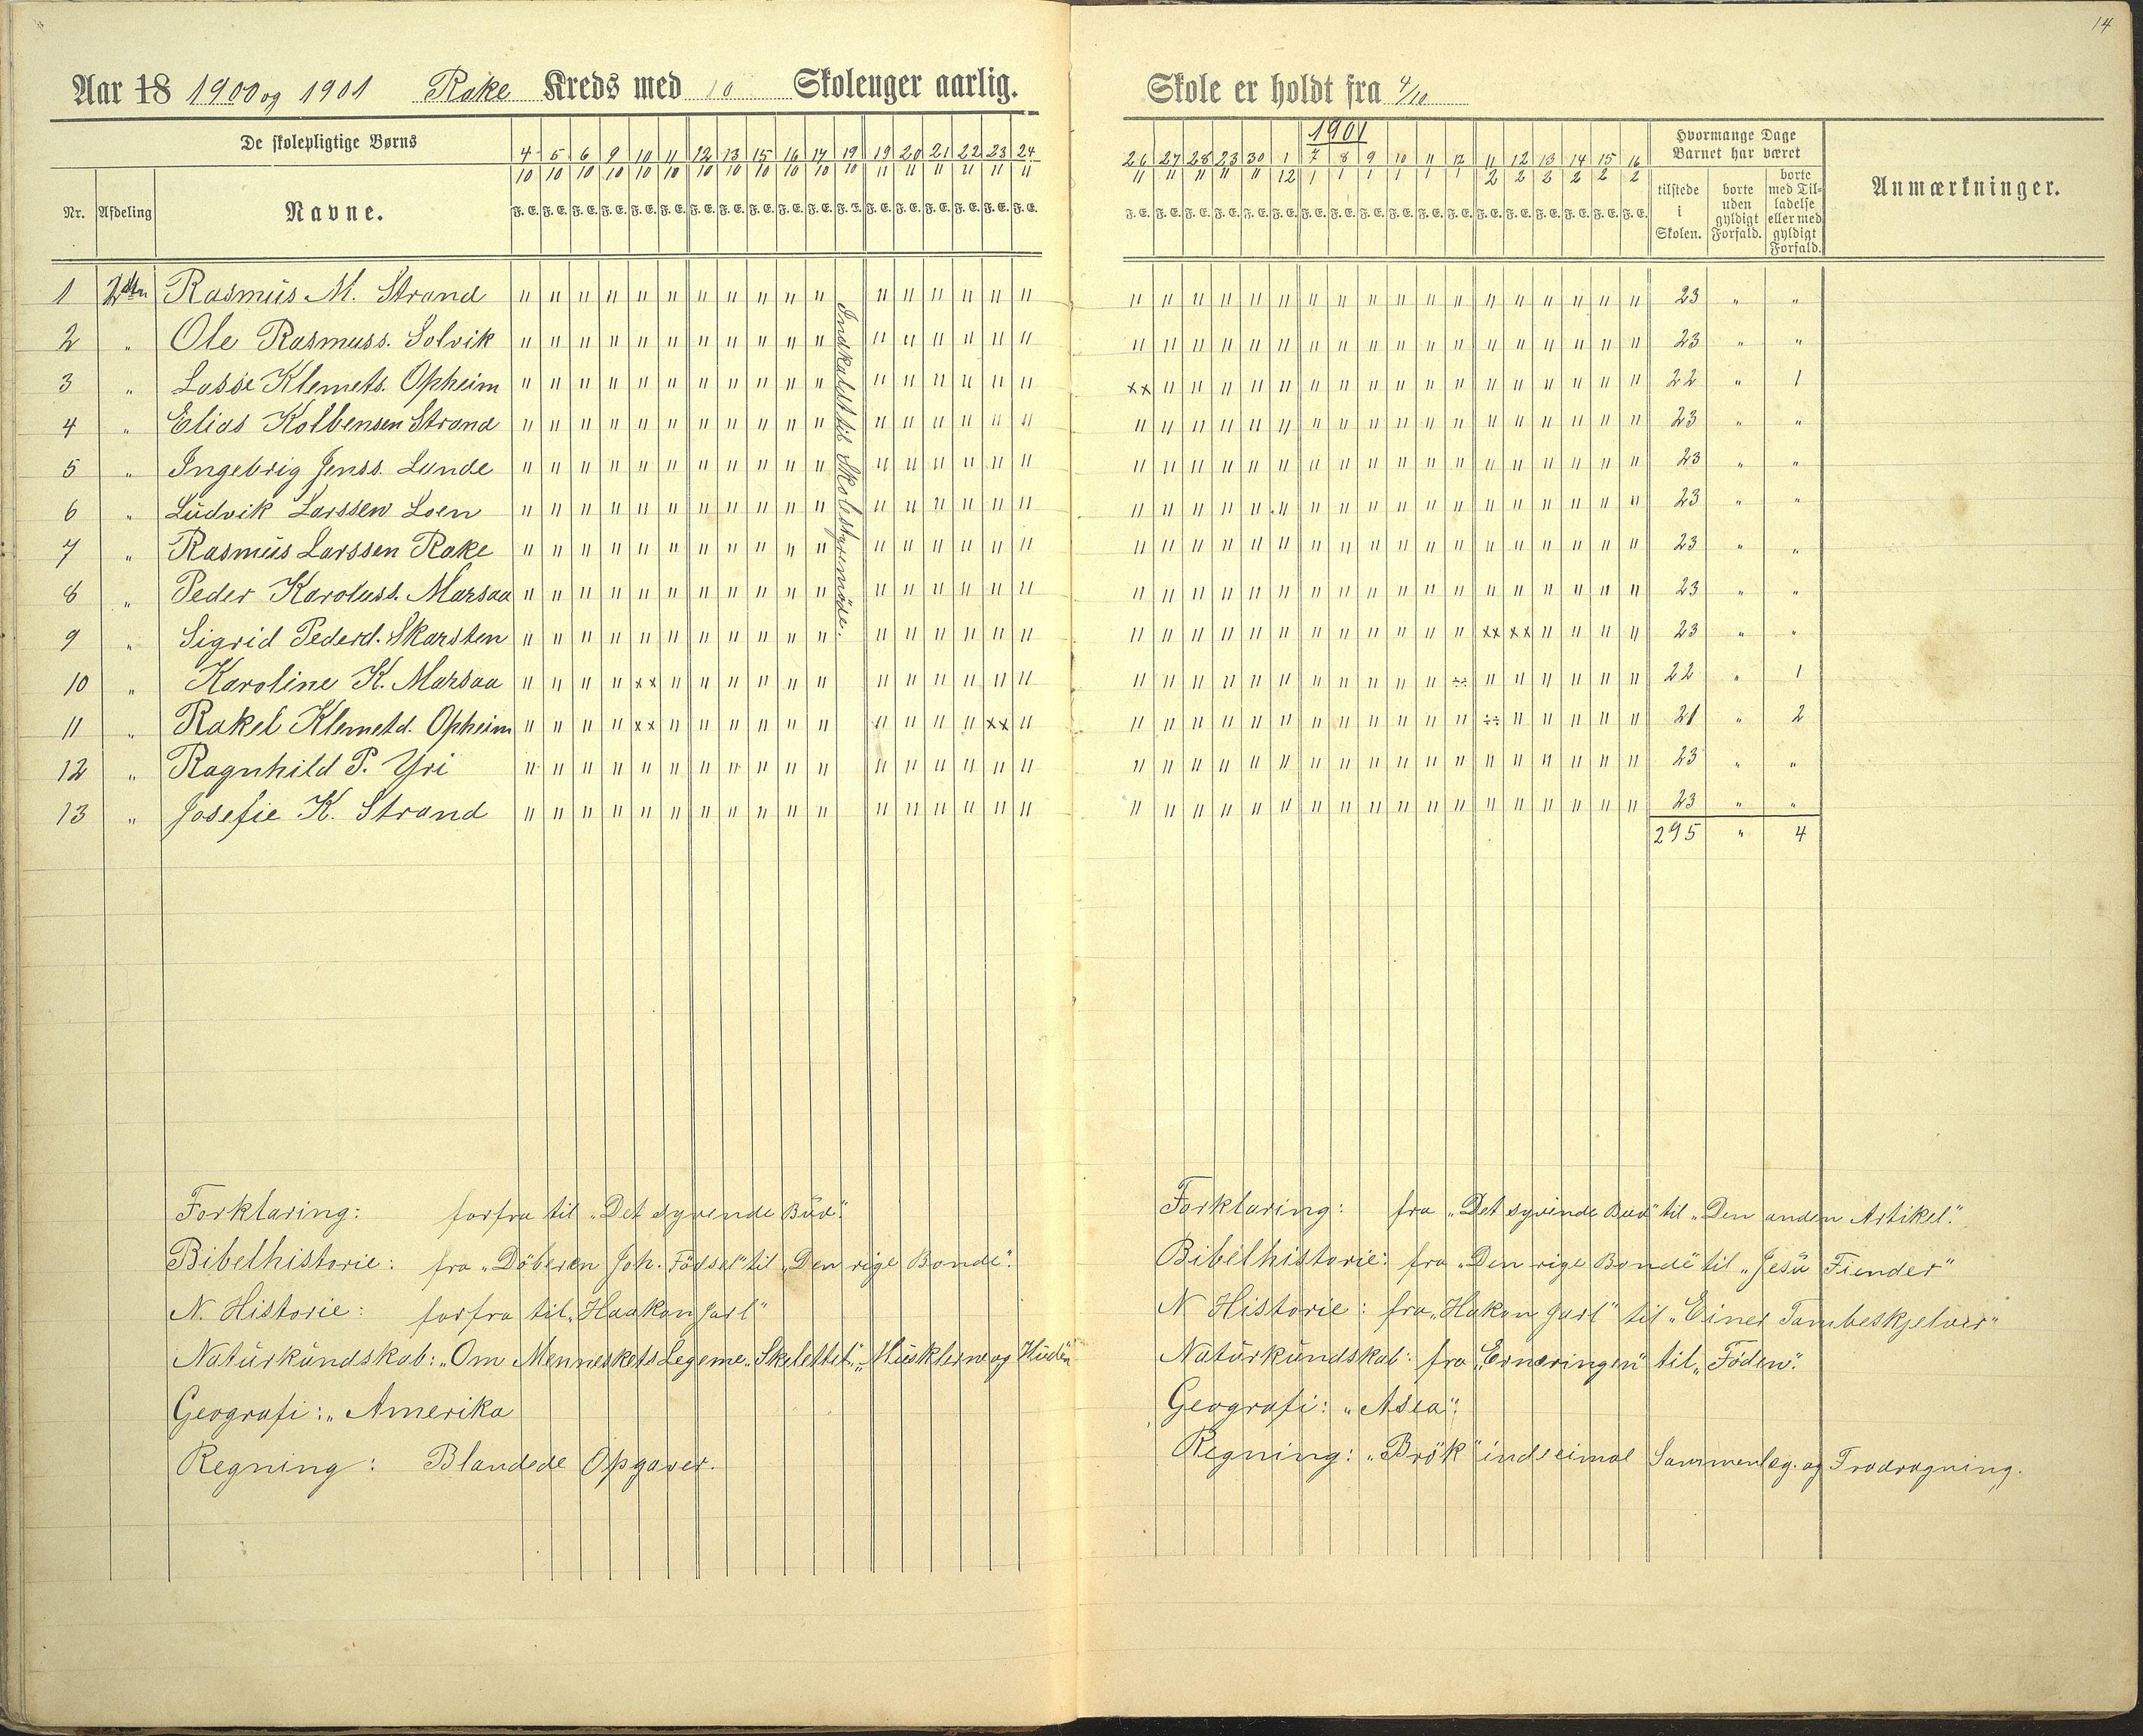 14
Aar 18 1900 og 1901 Rake Kreds med 10 Skoleuger aarlig.
Skole er holdt fra 4/10
De skolepligtige Børns
Nr. Afdeling Navne.
4/10 5/10 6/10 9/10 10/10 11/10 12/10 13/10 15/10 16/10 17/10 19/10 19/11 20/11 21/11 22/11 23/11 24/11
F. E. F. E. F. E. F. E. F. E. F. E. F. E. F. E. F. E. F. E. F. E. F. E. F. E. F. E. F. E. F. E. F. E. F. E.
1901
26/11 27/11 28/11 23/11 30/11 1/12 7/1 8/1 9/1 10/1 11/1 12/1 11/2 12/2 13/2 14/2 15/2 16/2
F. E. F. E. F. E. F. E. F. E. F. E. F. E. F. E. F. E. F. E. F. E. F. E. F. E. F. E. F. E. F. E. F. E. F. E.
Hvormange Dage
Barnet har været
tilstede i Skolen.
borte uden gyldigt Forfald.
borte med Tilladelse eller med gyldigt Forfald.
Anmærkninger.
1 2den Rasmus M. Strand 23 " "
2 " Ole Rasmuss. Solvik 23 " "
3 " Lasse Klemets. Opheim xx 22 " 1
4 " Elias Kolbensen Strand 23 " "
5 " Ingebrig Jenss. Lunde 23 " "
6 " Ludvik Larssen Loen 23 " "
7 " Rasmus Larssen Rake 23 " "
8 " Peder Karoluss. Marsaa 23 " "
9 " Sigrid Pederd. Skarsten xx xx 23 " "
10 " Karoline K. Marsaa xx ÷÷ 22 " 1
11 " Rakel Klemetd. Opheim xx xx ÷÷ 21 " 2
12 " Ragnhild P. Yri 23 " "
13 " Josefie K. Strand 23 " "
295 " 4
Indkaldt til Skolestyremøde.
Forklaring: forfra til „Det syvende Bud".
Bibelhistorie: fra „Döberen Joh. Födsel" til „Den rige Bonde".
N. Historie: forfra til „Haakon Jarl"
Naturkundskab: „Om Menneskets Legeme „Skelettet", „Musklerne og Huden
Geografi: „Amerika
Regning: Blandede Opgaver.
Forklaring: fra „Det syvinde Bud" til „Den anden Artikel".
Bibelhistorie: fra „Den rige Bonde" til „Jesu Fiender"
N Historie: fra „Hakon Jarl" til „Einer Tambeskjelver"
Naturkundskab: fra „Ernæringen" til „Föden".
Geografi: „Asea".
Regning: „Brök" i Sammenlæg. og Fradragning.